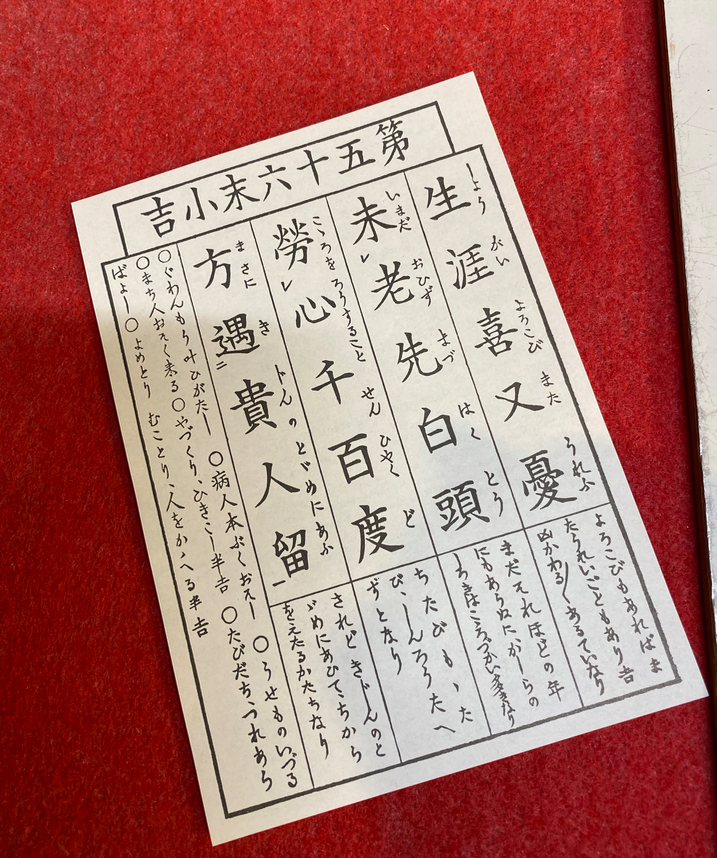 第五十六末小吉
生涯喜又憂
しようがいよろこびまたうれふ
よろこびもあればま
たうれいごともあり吉
凶かわる〲あるていなり
未レ老先白頭
いまだおひずまづはくとう
まだそれほどの年
にもあらぬにかしらの
しろきはこころづかい多きなり
勞レ心千百度
こころをろうすることせんひやくど
ちたびもゝた
び、しんろうたへ
ずとなり
方遇二貴人留一
まさにきトんのとゞめにあふ
されどきしんのと
ゞめにあひてちから
をえたるかたちなり
○ぐわんもり叶ひがたし ○病人本ぶくおそし ○うせものいづる
○まち人おそく来る○やづくり、ひきこし半吉 ○たびだち、つれあら
ばよし○よめとり むことり、人をかゝへる半吉